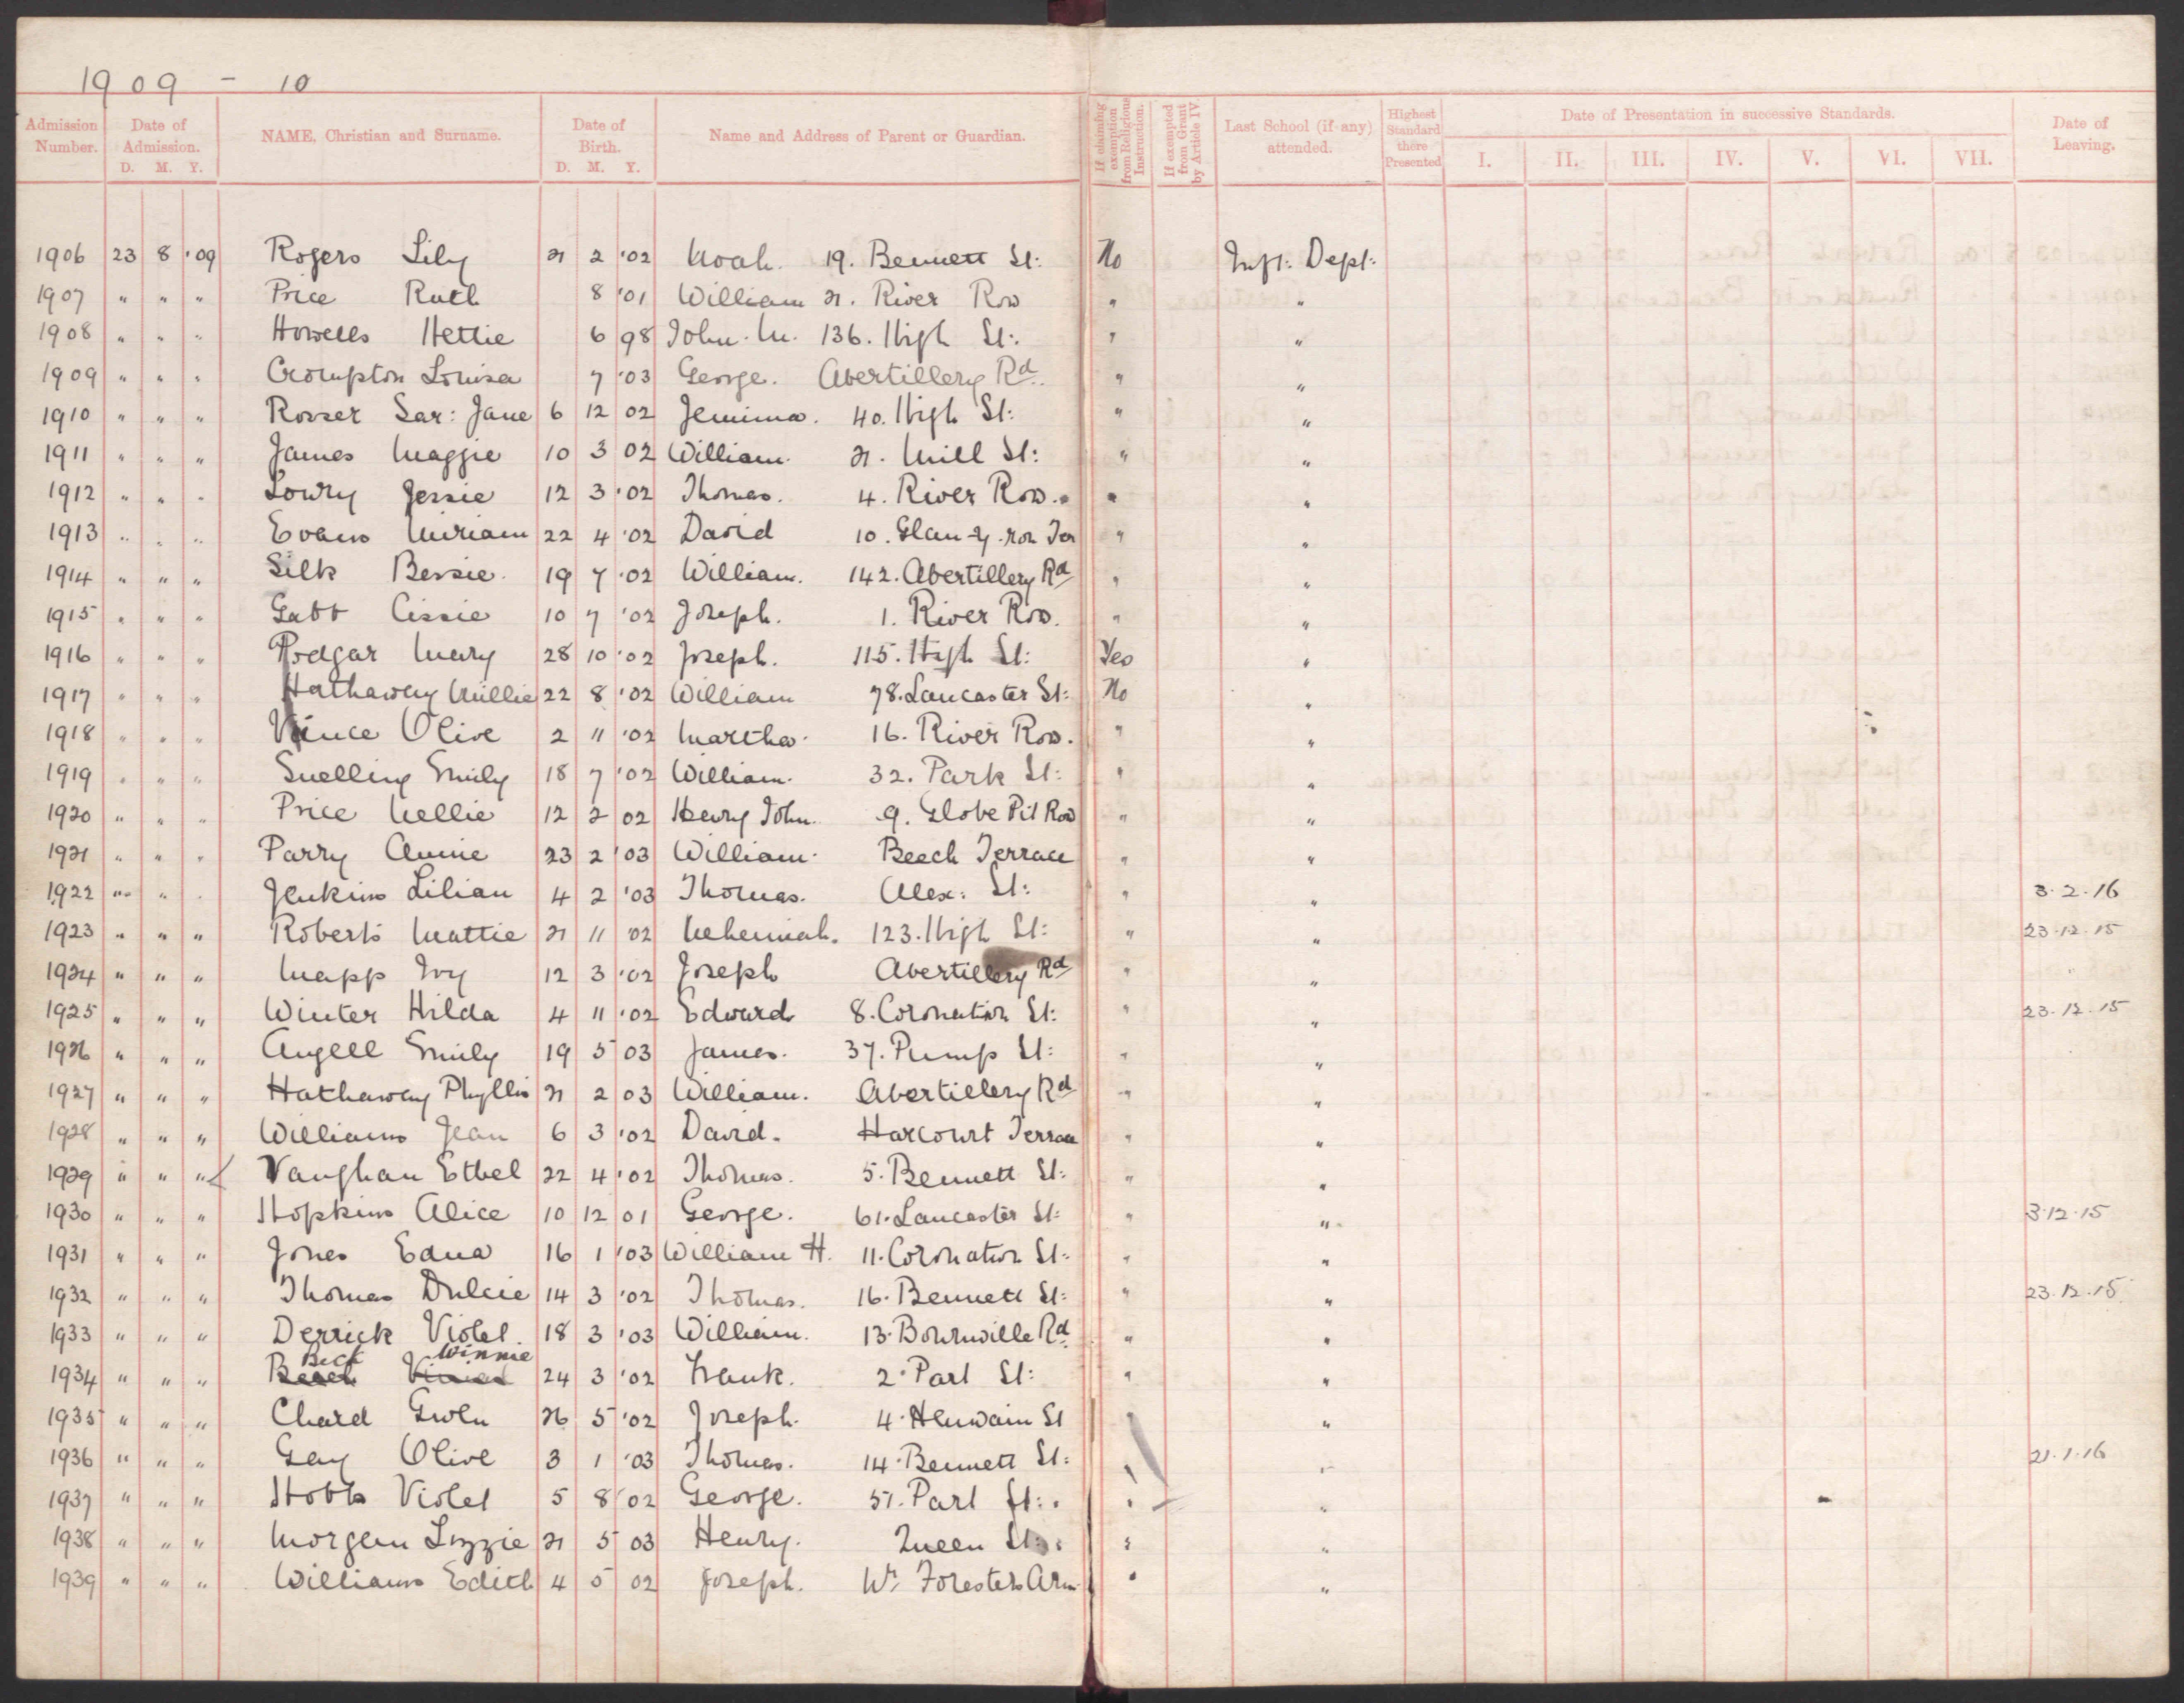 1909 - 10
Admission Number. Date of Admission. D. M. Y. NAME, Christian and Surname. Date of Birth. D. M. Y. Name and Address of Parent or Guardian. If claiming exemption from Religious Instruction. If exempted from Grant by Article IV. Last School (if any) attended. Highest Standard there Presented Date of Presentation in successive Standards. I. II. III. IV. V. VI. VII. Date of Leaving.
1906 23 8 '09 Rogers Lily 21 2 '02 Noah. 19. Bennett St: No Inft: Dept:
1907 " " " Price Ruth 8 '01 William 21. River Row " "
1908 " " " Howells Hettie 6 98 John. M. 136. High St: " "
1909 " " " Crompton Louisa 7 '03 George. Abertillery Rd. " "
1910 " " " Rosser Sar: Jane 6 12 02 Jemima. 40. High St: " "
1911 " " " James Maggie 10 3 02 William. 21. Mill St: " "
1912 " " " Lowry Jessie 12 3 '02 Thomas. 4. River Row. " "
1913 " " " Evans Miriam 22 4 '02 David 10. Glan-y-ron Ter " "
1914 " " " Silk Bessie. 19 7 '02 William. 142. Abertillery Rd " "
1915 " " " Gabb Cissie 10 7 '02 Joseph. 1. River Row. " "
1916 " " " Podgar Mary 28 10 '02 Joseph. 115. High St: Yes "
1917 " " " Hathaway Millie 22 8 '02 William 78. Lancaster St: No "
1918 " " " Vince Olive 2 11 '02 Martha. 16. River Row. " "
1919 " " " Snelling Emily 18 7 '02 William. 32. Park St: " "
1920 " " " Price Nellie 12 2 02 Henry John. 9. Globe Pit Row " "
1921 " " " Parry Annie 23 2 '03 William. Beech Terrace " "
1922 " " " Jenkins Lilian 4 2 '03 Thomas. Alex: St: " " 3.2.16
1923 " " " Roberts Mattie 21 11 '02 Nehemiah. 123. High St: " " 23.12.15
1924 " " " Mapp Ivy 12 3 '02 Joseph Abertillery Rd " " "
1925 " " " Winter Hilda 4 11 '02 Edward 8. Coronation St: " " 23.12.15
1926 " " " Angell Emily 19 5 03 James. 37. Pump St: " "
1927 " " " Hathaway Phyllis 21 2 03 William. Abertillery Rd " "
1928 " " " Williams Jean 6 3 '02 David. Harcourt Terrace " "
1929 " " " Vaughan Ethel 22 4 '02 Thomas. 5. Bennett St: " "
1930 " " " Hopkins Alice 10 12 01 George. 61. Lancaster St: " " 3.12.15
1931 " " " Jones Edna 16 1 '03 William H. 11. Coronation St: " "
1932 " " " Thomas Dulcie 14 3 '02 Thomas. 16. Bennett St: " " 23.12.15
1933 " " " Derrick Violet. 18 3 '03 William. 13. Bournville Rd " "
Beck Winnie
1934 " " " 24 3 '02 Frank. 2. Parl St: " "
1935 " " " Chard Gwen 26 5 '02 Joseph. 4. Henwain St " "
1936 " " " Gay Olive 3 1 '03 Thomas. 14. Bennett St: " " 21.1.16
1937 " " " Hobbs Violet 5 8 '02 George. 57. Parl St: " "
1938 " " " Morgan Lizzie 21 5 03 Henry. Queen St: " "
1939 " " " Williams Edith 4 5 02 Joseph. Foresters Arm " "